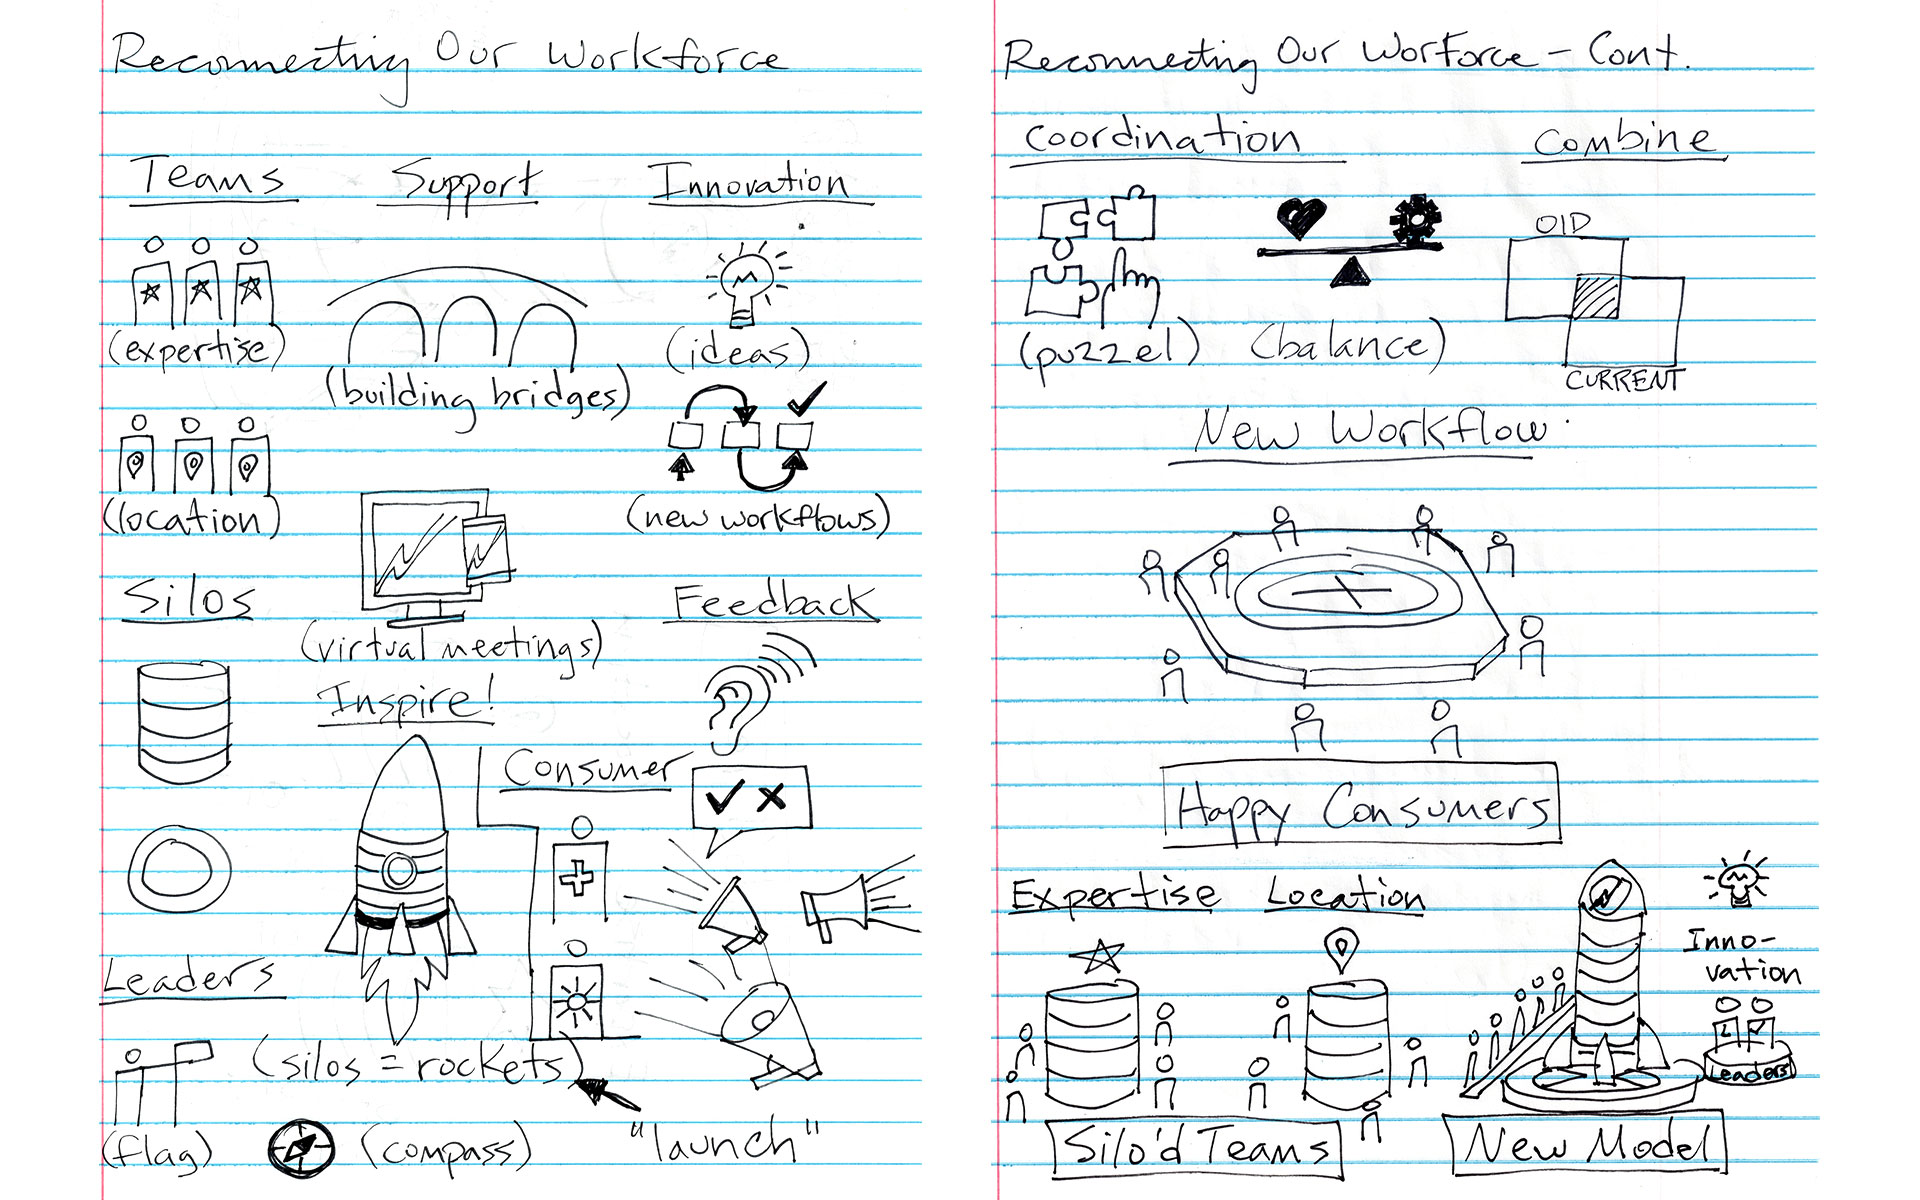 Reconnecting Our Workforce
Teams
Support
Innovation
(expertise)
(building bridges)
(ideas)
(location)
(new workflows)
Silos
(virtual meetings)
Feedback
Inspire!
Consumer
Leaders
(silos = rockets)
(flag)
(compass)
"launch"
Reconnecting Our Worforce - Cont.
Coordination
Combine
OlD
(puzzel)
(balance)
CURRENT
New Workflow
Happy Consumers
Expertise
Location
Inno-
vation
Leaders
Silo'd Teams
New Model